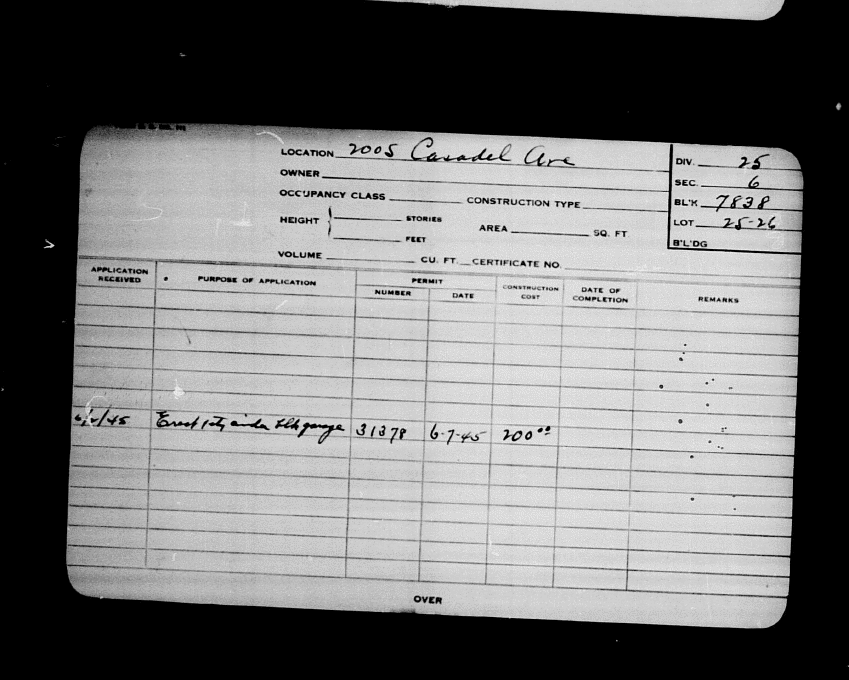 LOCATION 2005 Casadel Ave
OWNER
OCCUPANCY CLASS CONSTRUCTION TYPE
HEIGHT STORIES AREA SQ. FT
FEET
VOLUME CU. FT. CERTIFICATE NO.
DIV. 25
SEC. 6
BL'K 7838
LOT 25-26
B'L'DG
APPLICATION RECEIVED PURPOSE OF APPLICATION PERMIT NUMBER DATE CONSTRUCTION COST DATE OF COMPLETION REMARKS
Erect 1 sty cinder blk garage 31378 6-7-45 200.00
OVER